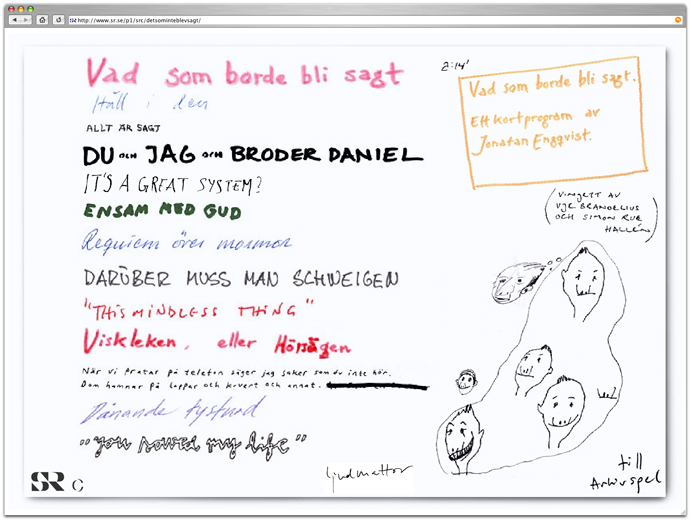 http://www.sr.se/p1/src/detsominteblevsagt/
Vad som borde bli sagt
Håll i den
ALLT ÄR SAGT
DU OCH JAG OCH BRODER DANIEL
IT'S A GREAT SYSTEM?
ENSAM MED GUD
Requiem över mormor
DARÜBER MUSS MAN SCHWEIGEN
"THIS MINDLESS THING"
Viskleken, eller Hörsägen
När vi pratar på telefon säger jag saker som du inte hör.
Dom hamnar på lappar och kuvert och annat.
Dånande tystnad
"you saved my life"
SR C
2:14'
Vad som borde bli sagt.
Ett kortprogram av
Jonatan Engqvist.
(VINJETT AV
UJE BRANDELIUS
OCH SIMON RUE
HALLÉN)
ljudmattor
till
Arkivspel